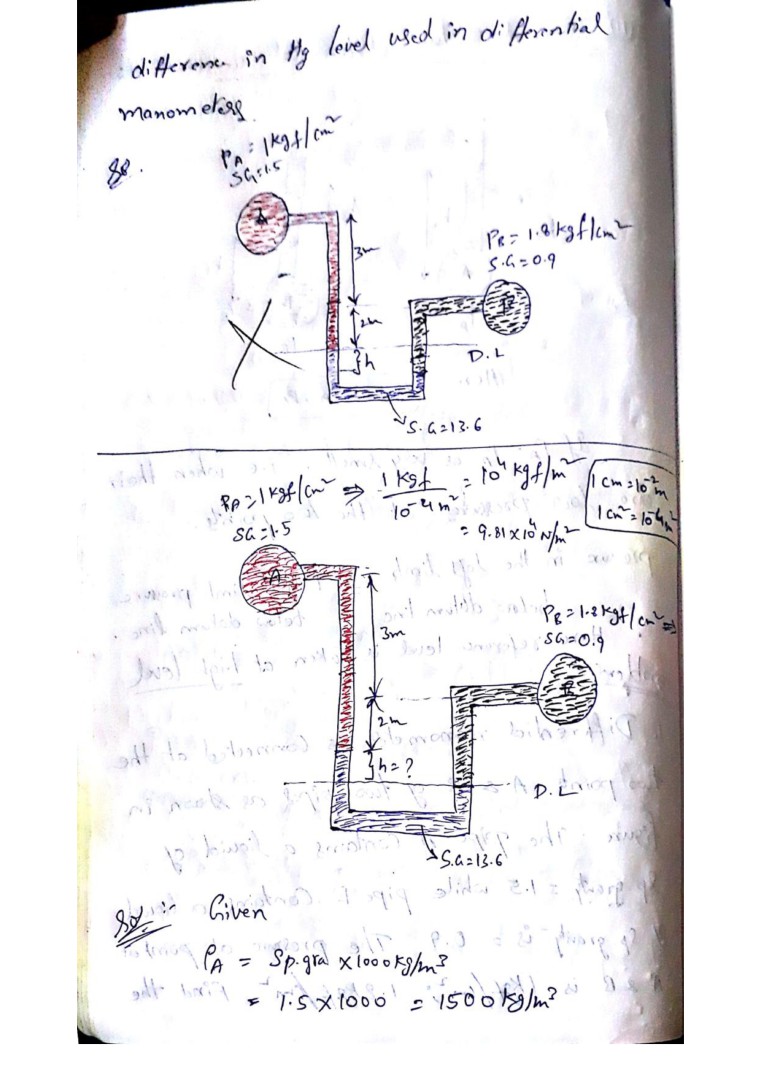 difference in Hg level used in differential
manometers.
Sol.
PA = 1kgf/cm²
SG=1.5
A
3m
PB = 1.8 kgf/cm²
S.G = 0.9
B
2m
}h
D.L
S.G=13.6
PA = 1kgf/cm² ⇒ 1 kgf / 10⁻⁴ m² = 10⁴ kgf/m²
1 cm = 10⁻² m
1 cm² = 10⁻⁴ m²
SG = 1.5
= 9.81 × 10⁴ N/m²
A
3m
PB = 1.8 kgf/cm² ⇒
SG = 0.9
B
2m
}h = ?
D.L
S.G=13.6
Sol :- Given
ρA = Sp.gra × 1000 kg/m³
= 1.5 × 1000 = 1500 kg/m³